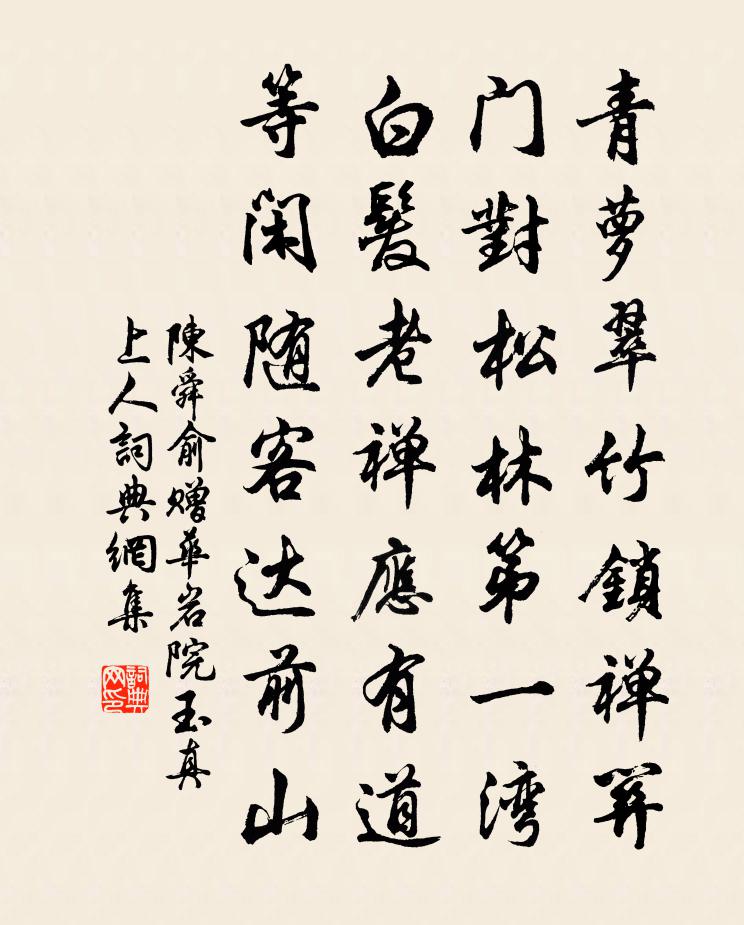 青萝翠竹鎖禅関
门對松林第一湾
白髮老禅應有道
等闲随客达前山
陳舜俞赠華岩院玉真
上人詞典網集
詞典网印